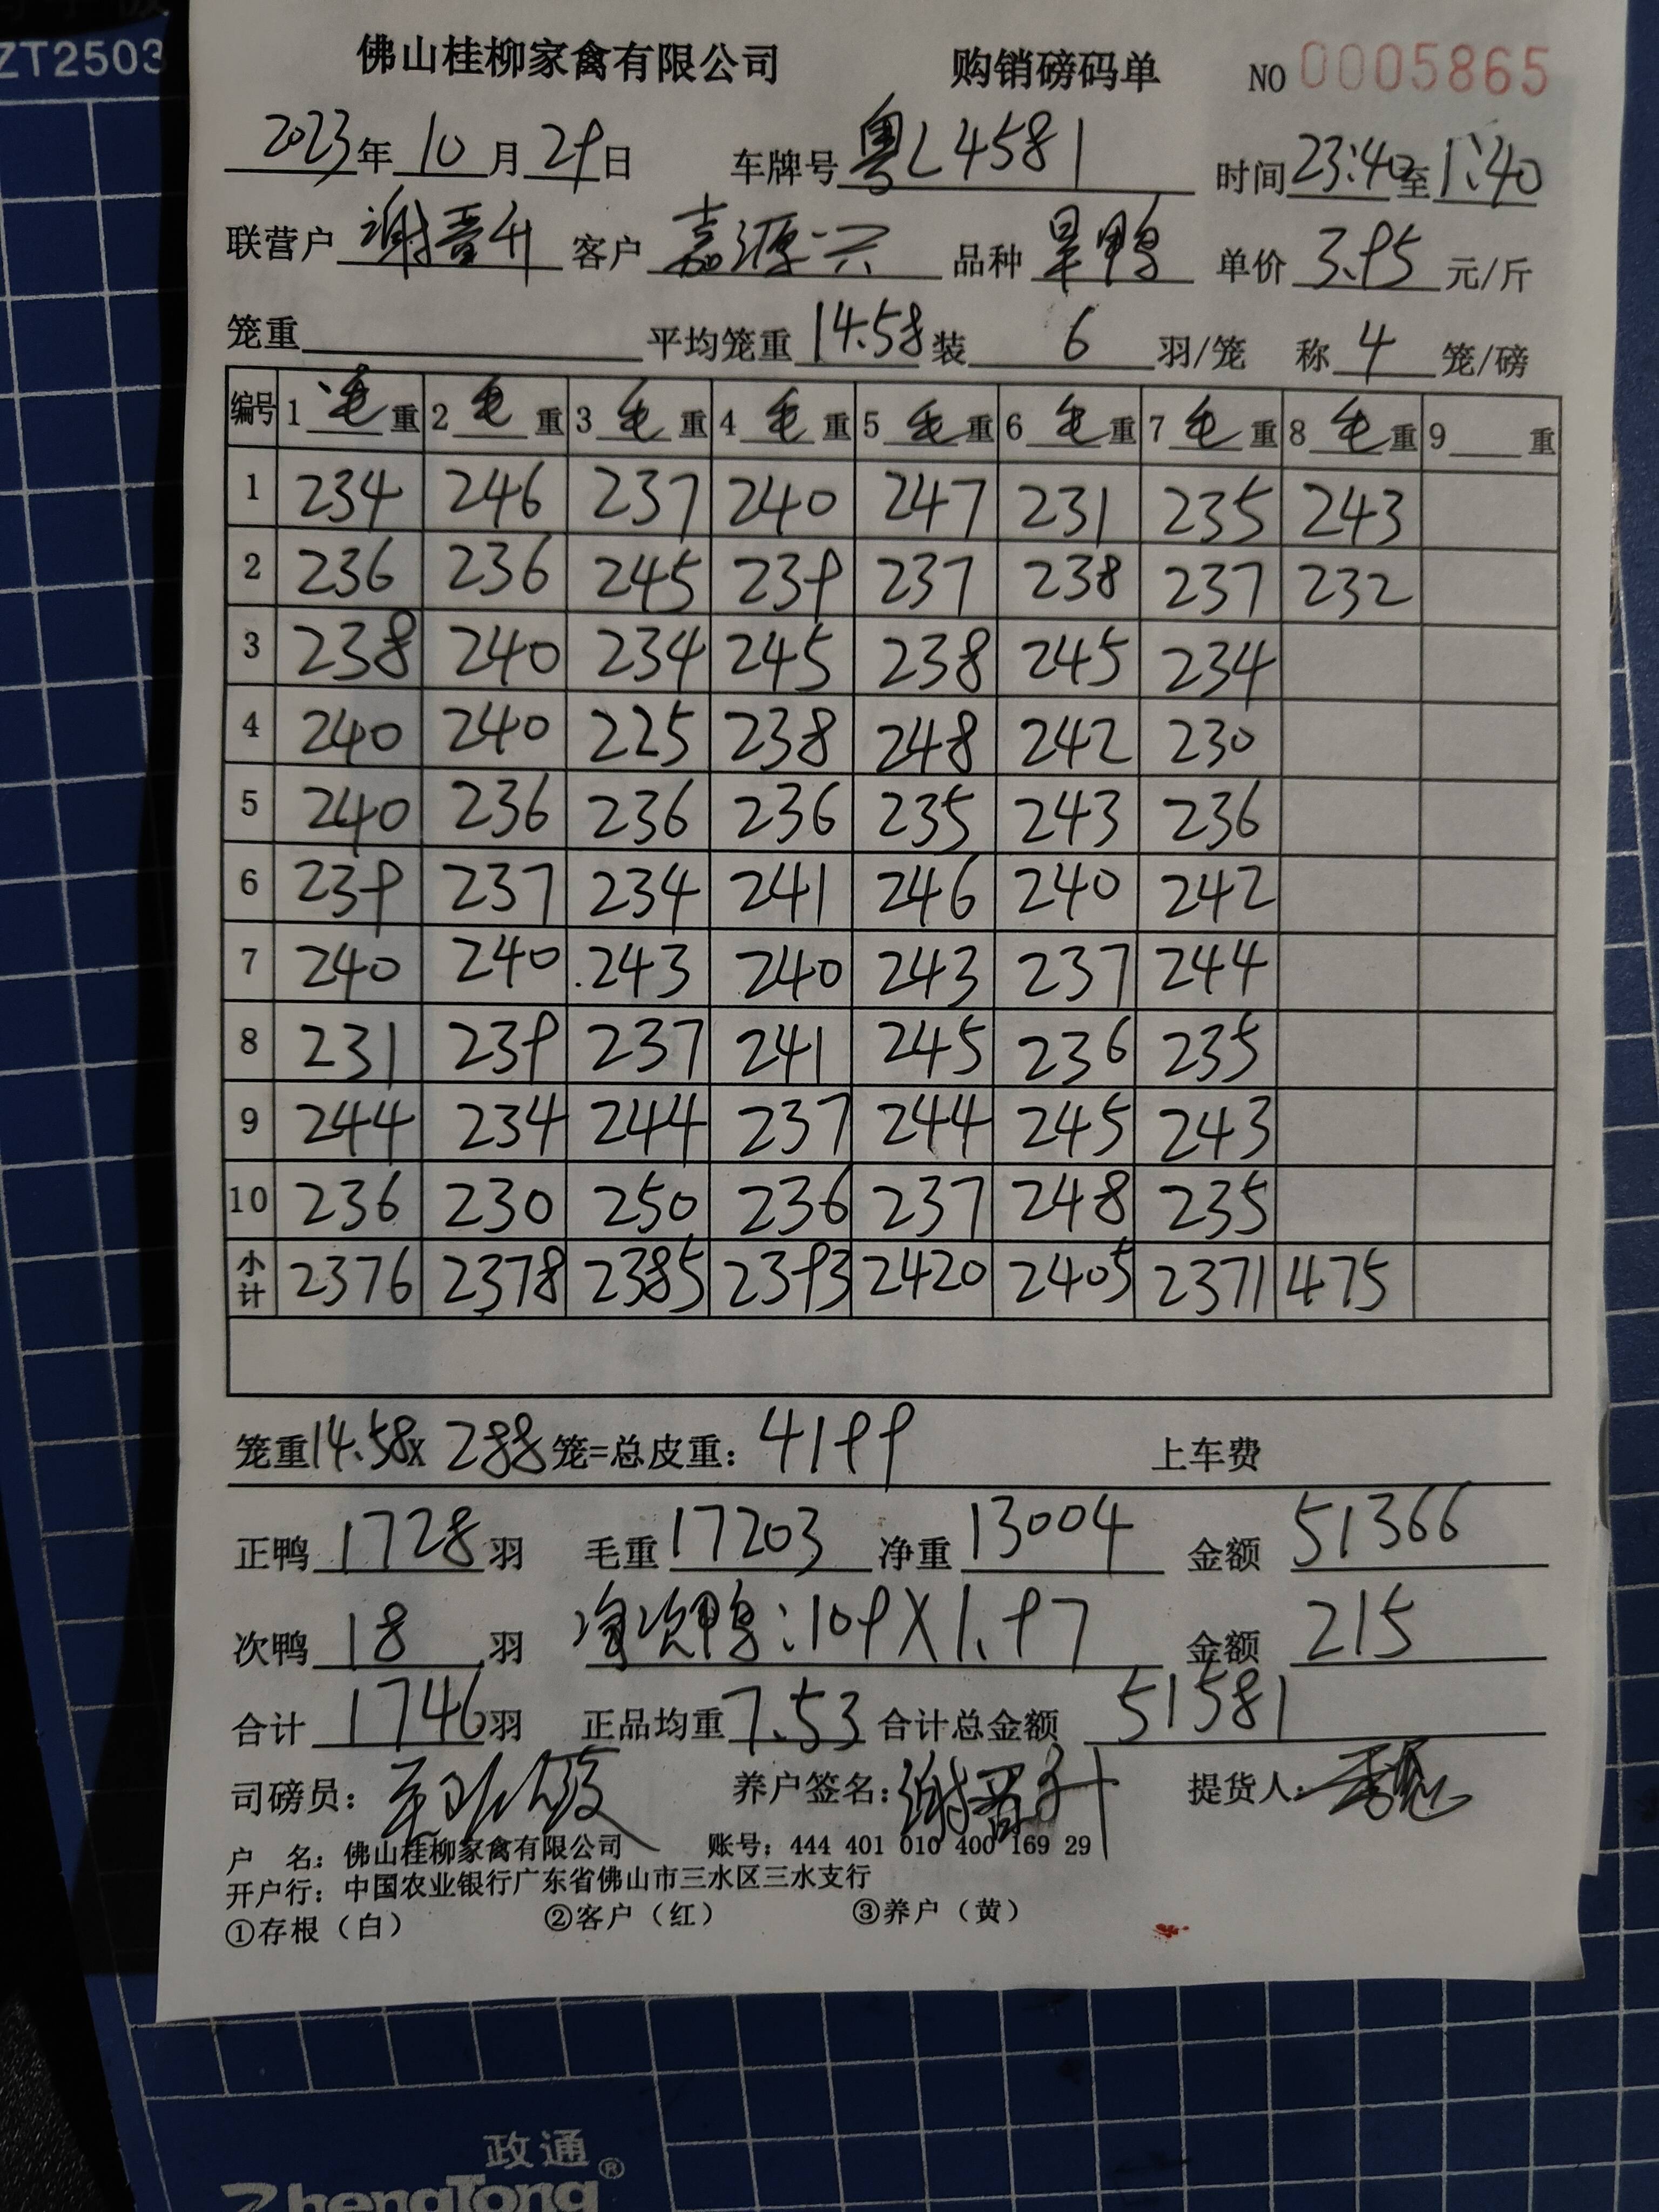 ZT2503
佛山桂柳家禽有限公司 购销磅码单 NO 0005865
2023年 10月 29日 车牌号 粤L4581 时间 23:40至1:40
联营户 谢晋升 客户 嘉源兴 品种 旱鸭 单价 3.95 元/斤
笼重 平均笼重 14.58 装 6 羽/笼 称 4 笼/磅
编号 1 毛重 2 毛重 3 毛重 4 毛重 5 毛重 6 毛重 7 毛重 8 毛重 9 重
1 234 246 237 240 247 231 235 243
2 236 236 245 239 237 238 237 232
3 238 240 234 245 238 245 234
4 240 240 225 238 248 242 230
5 240 236 236 236 235 243 236
6 239 237 234 241 246 240 242
7 240 240 243 240 243 237 244
8 231 239 237 241 245 236 235
9 244 234 244 237 244 245 243
10 236 230 250 236 237 248 235
小计 2376 2378 2385 2393 2420 2405 2371 475
笼重14.58x 288 笼=总皮重: 4199 上车费
正鸭 1728 羽 毛重 17203 净重 13004 金额 51366
次鸭 18 羽 淘次鸭:109X1.97 金额 215
合计 1746 羽 正品均重 7.53 合计总金额 51581
司磅员: 养户签名:谢晋升 提货人:
户 名: 佛山桂柳家禽有限公司 账号: 444 401 010 400 169 29
开户行: 中国农业银行广东省佛山市三水区三水支行
①存根（白） ②客户（红） ③养户（黄）
政通
ZhengTong®